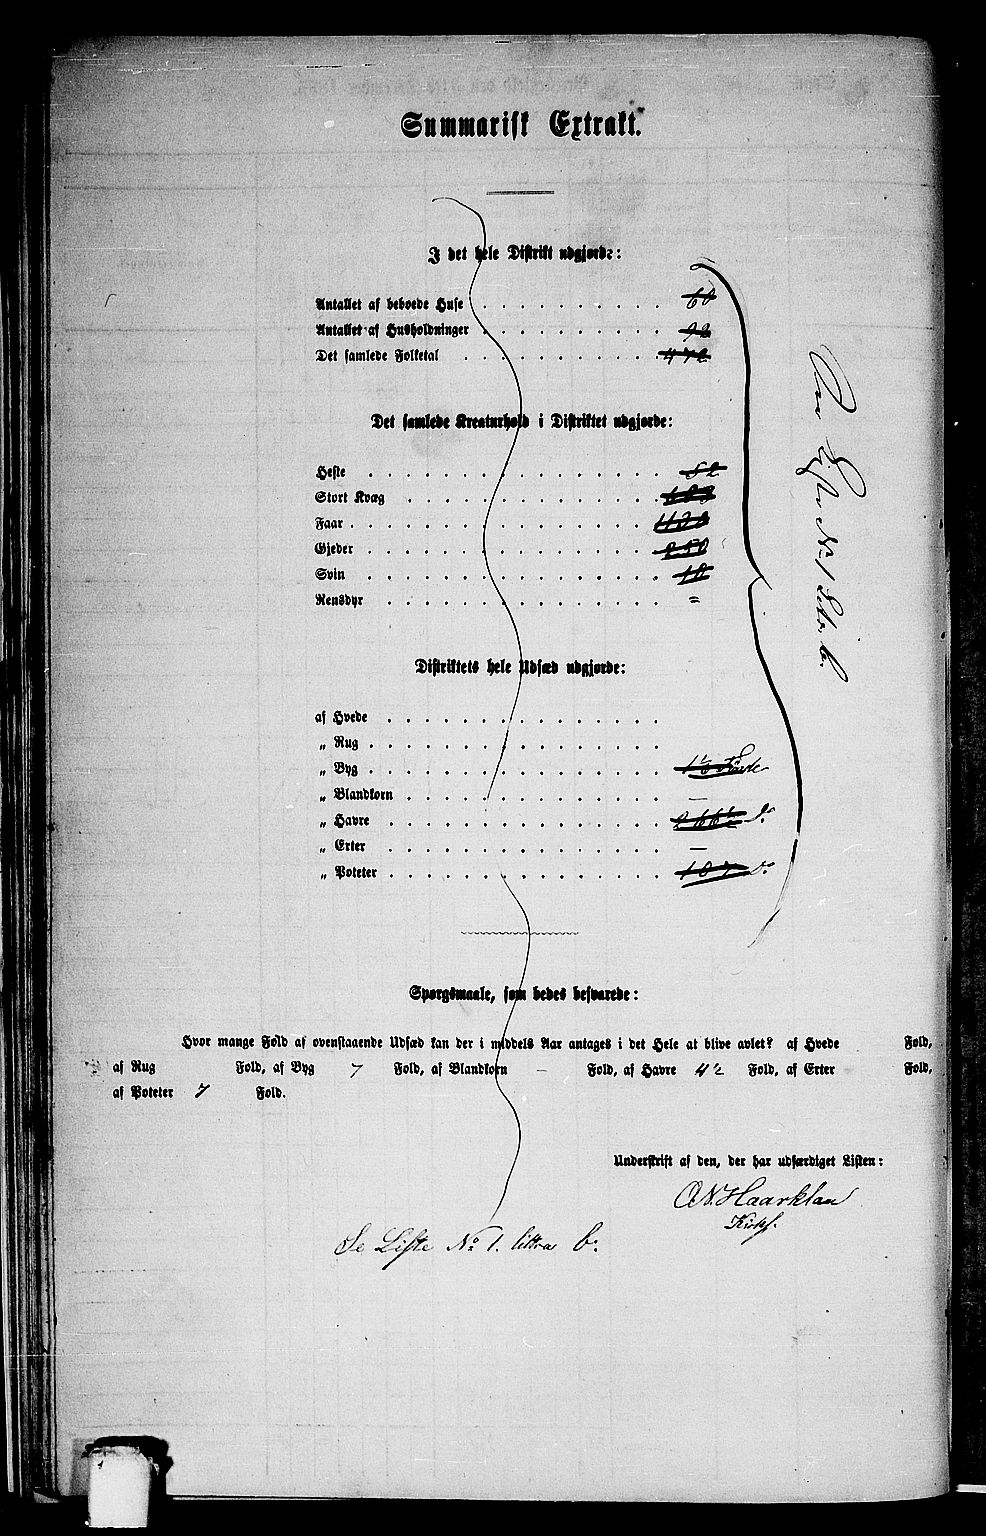 Summarisk Extrakt.
I det hele Distrikt udgjorde:
Antallet af beboede Huse 60
Antallet af Husholdninger 92
Det samlede Folketal 472
Det samlede Kreaturhold i Distriktet udgjorde:
Heste 52
Stort Kvæg
Faar
Gjeder 250
Svin
Rensdyr =
Distriktets hele Udsæd udgjorde:
af Hvede
„ Rug
„ Byg
„ Blandkorn —
„ Havre 266½ do
„ Erter —
„ Poteter 107 do
Liste No 1 Litr. b.
Spørgsmaale, som bedes besvarede:
Hvor mange Fold af ovenstaaende Udsæd kan der i middels Aar antages i det Hele at blive avlet? af Hvede Fold,
af Rug Fold, af Byg 7 Fold, af Blandkorn - Fold, af Havre 4½ Fold, af Erter Fold,
af Poteter 7 Fold.
Underskrift af den, der har udfærdiget Listen:
O.N. Haarklau
Kirks.
Se Liste No 1. littra b.